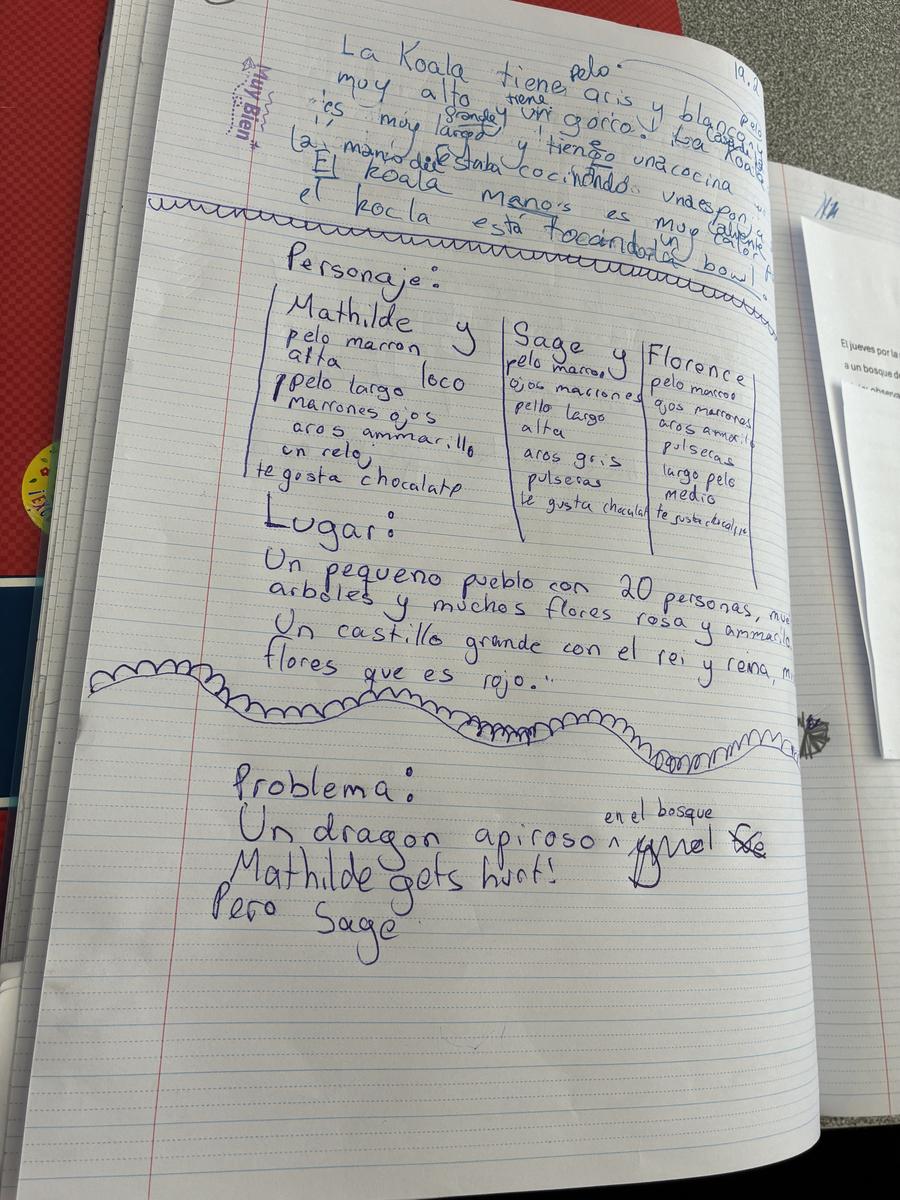 19.2
pelo.
La Koala tiene gris y blanco, y pelo
muy alto tiene un gorro. La Koala
es muy grande y
largo y tiengo una cocina
la mano de estaba cocinando.
El koala manos es muy caliente
el kocla está tocándola un bowl.
Muy Bien
Personaje:
Mathilde y
pelo marron
alta
loco
pelo largo
marrones ojos
aros ammarillo
un reloj
te gosta chocalate
Sage y
pelo marron
ojos marrones
pello largo
alta
aros gris
pulseras
te gusta chocalat
Florence
pelo marron
ojos marrones
aros amarillo
pulseras
largo pelo
medio
te gusta chocalate
Lugar:
Un pequeno pueblo con 20 personas,
arboles y muchos flores rosa y ammarilo
Un castillo grande con el rei y reina,
flores que es rojo."
Problema:
en el bosque
Un dragon apiroso
Mathilde gets hurt!
Pero Sage
El jueves por la
a un bosque de